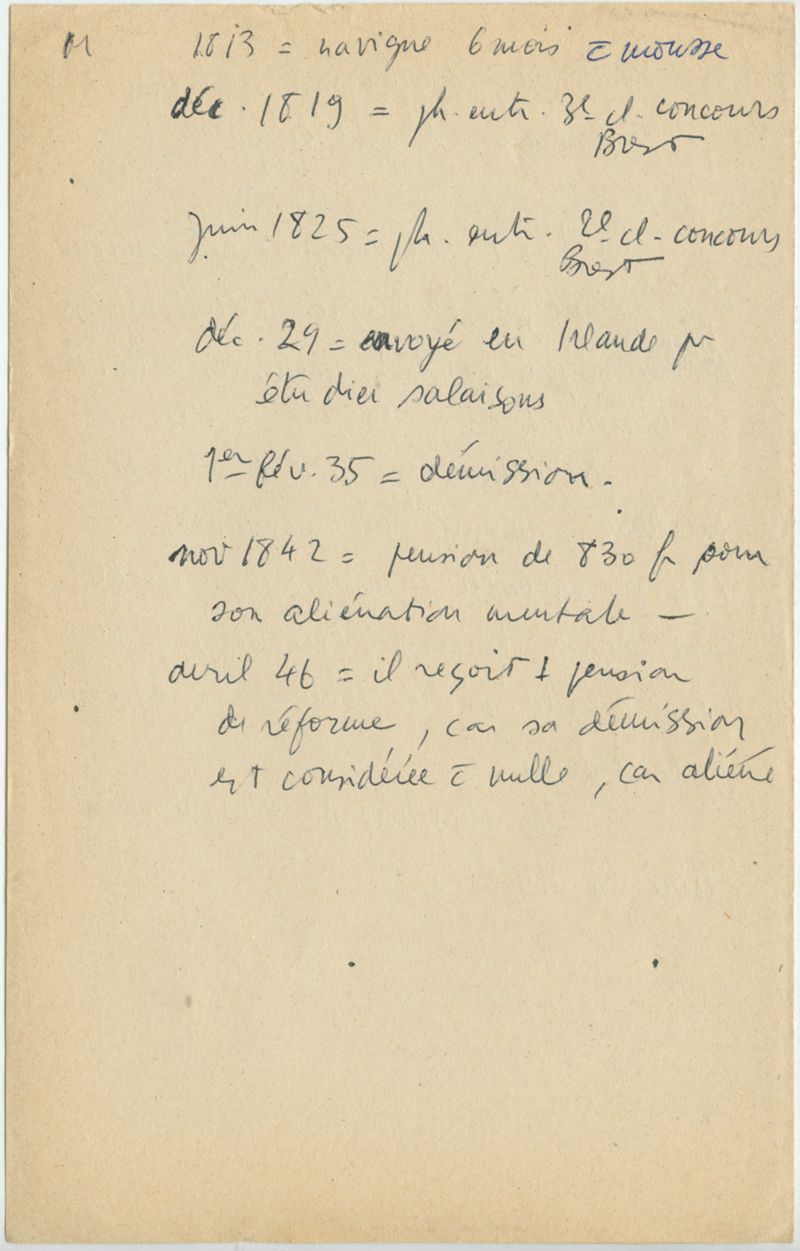 M 1813 = navigue 6 mois = mousse
déc. 1819 = ph. entr. 3e cl. concours
Brest
Juin 1825 = ph. entr. 2e cl. concours
Brest
déc. 29 = envoyé en Irlande pr
étudier salaisons
1er fév. 35 = démission.
nov 1842 = pension de 830 fr pour
son aliénation mentale —
avril 46 = il reçoit 1 pension
de réforme, car sa démission
est considérée = nulle, car aliéné